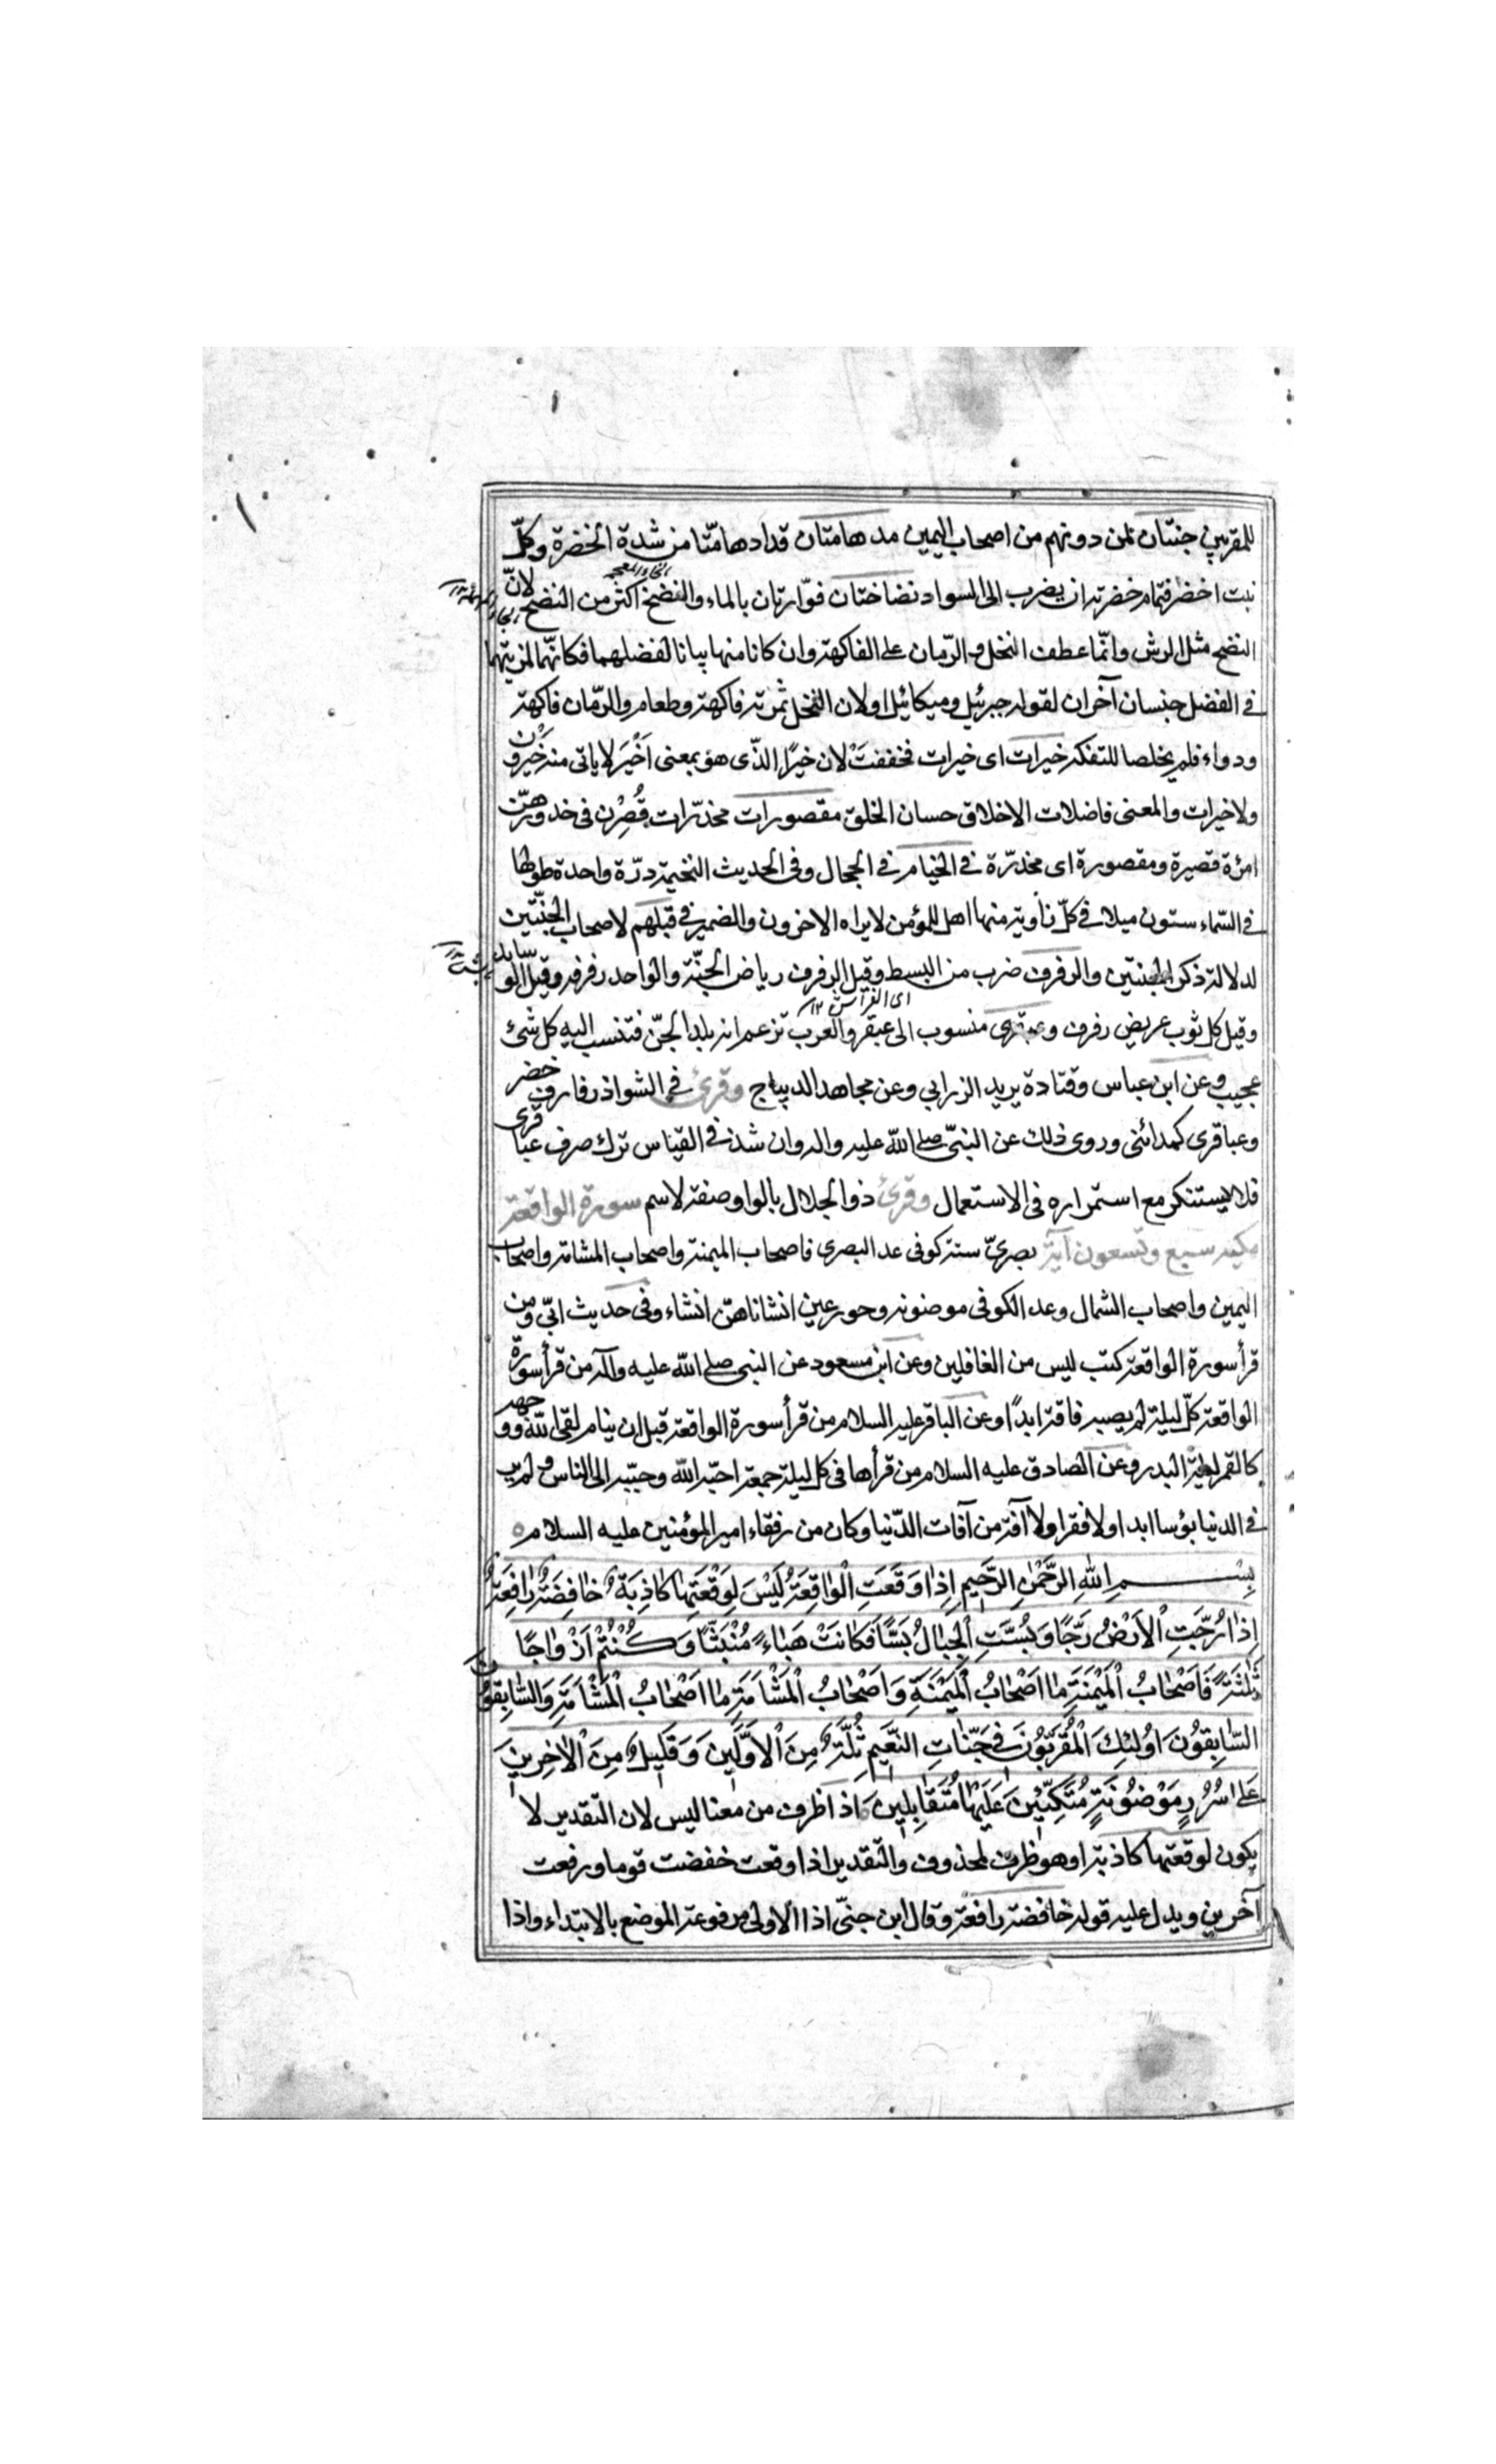 للمقربين جنتان لمن دونهم من اصحاب اليمين مدهامتان قد ادهامّتا من شدة الخضرة وكلّ
نبت اخضر فتمام خضرته ان يضرب الى السواد نضاختان فوّارتان بالماء والنضخ اكثر من النضح لانّ
النضح مثل الرش وانّما عطف النخل والرّمان على الفاكهة وان كانا منها بيانا لفضلهما فكانّهما لمزيتهما
في الفضل جنسان آخران لقوله جبرئيل وميكائيل او لان النخل ثمرته فاكهة وطعام والرمّان فاكهة
ودواء فلم يخلصا للتفكه خيرات اى خيرات فخففت لان خيرًا الذّى هو بمعنى اَخْيَر لا ياتى منه خَيْرون
ولا خيرات والمعنى فاضلات الاخلاق حسان الخلق مقصورات مخدّرات قُصِرْن فى خدورهنّ
امرٔة قصيرة ومقصورة اى مخدّرة في الخيام في الحجال وفى الحديث الخيمة درّة واحدة طولها
في السّماء ستون ميلا في كلّ زاوية منها اهل للمؤمن لا يراه الاخرون والضمير في قبلهم لاصحاب الجنّتين
لدلالة ذكر الجنتين والرفرف ضرب من البسط وقيل الرفرف رياض الجنّة والواحد رفرفة وقيل الوسايد
اى الفراش ١٢
وقيل كل ثوب عريض رفرف وعبقرى منسوب الى عبقر والعرب تزعم انه بلد الجنّ فتنسب اليه كل شئ
عجيب وعن ابن عباس وقتادة يريد الزرابي وعن مجاهد الديباج وقرئ في الشواذ رفارف خضر
وعباقرى كمدائنى وروى ذلك عن النبىّ صلى الله عليه واله وان شذ في القياس ترك صرف عباقرى
فلا يستنكر مع استمراره فى الاستعمال وقرئ ذوا الجلال بالواو صفة لاسم سورة الواقعة
مكية سبع وتسعون آية بصرىّ ستة كوفى عد البصرى فاصحاب الميمنة واصحاب المشامة واصحاب
اليمين واصحاب الشمال وعد الكوفى موضونة وحور عين انشاناهنّ انشاء وفى حديث ابىّ ومن
قرأ سورة الواقعة كتب ليس من الغافلين وعن ابن مسعود عن النبى صلى الله عليه وآله من قرأ سورة
الواقعة كلّ ليلة لم يصبه فاقة ابدًا وعن الباقر عليه السلام من قرأ سورة الواقعة قبل ان ينام لقى الله ووجهه
كالقمر ليلة البدر وعن الصادق عليه السلام من قرأها فى كل ليلة جمعة احبّه الله وحبّبه الى الناس ولم ير
في الدنيا بؤسا ابدا ولا فقرا ولا آفة من آفات الدّنيا وكان من رفقاء امير المؤمنين عليه السلام
بِسْمِ اللهِ الرَّحْمٰنِ الرَّحِيمِ اِذَا وَقَعَتِ الْوَاقِعَةُ لَيْسَ لِوَقْعَتِهَا كَاذِبَةٌ خَافِضَةٌ رَافِعَةٌ
اِذَا رُجَّتِ الْاَرْضُ رَجًّا وَبُسَّتِ الْجِبَالُ بَسًّا فَكَانَتْ هَبَاءً مُنْبَثًّا وَكُنْتُمْ اَزْوَاجًا
ثَلٰثَةً فَاَصْحَابُ الْمَيْمَنَةِ مَا اَصْحَابُ الْمَيْمَنَةِ وَاَصْحَابُ الْمَشْاَمَةِ مَا اَصْحَابُ الْمَشْاَمَةِ وَالسَّابِقُونَ
السَّابِقُونَ اُولٰئِكَ الْمُقَرَّبُونَ فِى جَنَّاتِ النَّعِيمِ ثُلَّةٌ مِنَ الْاَوَّلِينَ وَقَلِيلٌ مِنَ الْاٰخِرِينَ
عَلٰى سُرُرٍ مَوْضُونَةٍ مُتَّكِئِينَ عَلَيْهَا مُتَقَابِلِينَ اذا ظرف من معنا ليس لان التقدير لا
يكون لوقعتها كاذبة او هو ظرف لمحذوف والتقدير اذا وقعت خفضت قوما ورفعت
آخرين ويدل عليه قوله خافضة رافعة وقال ابن جنّى اذا الاولى مرفوعة الموضع بالابتداء واذا